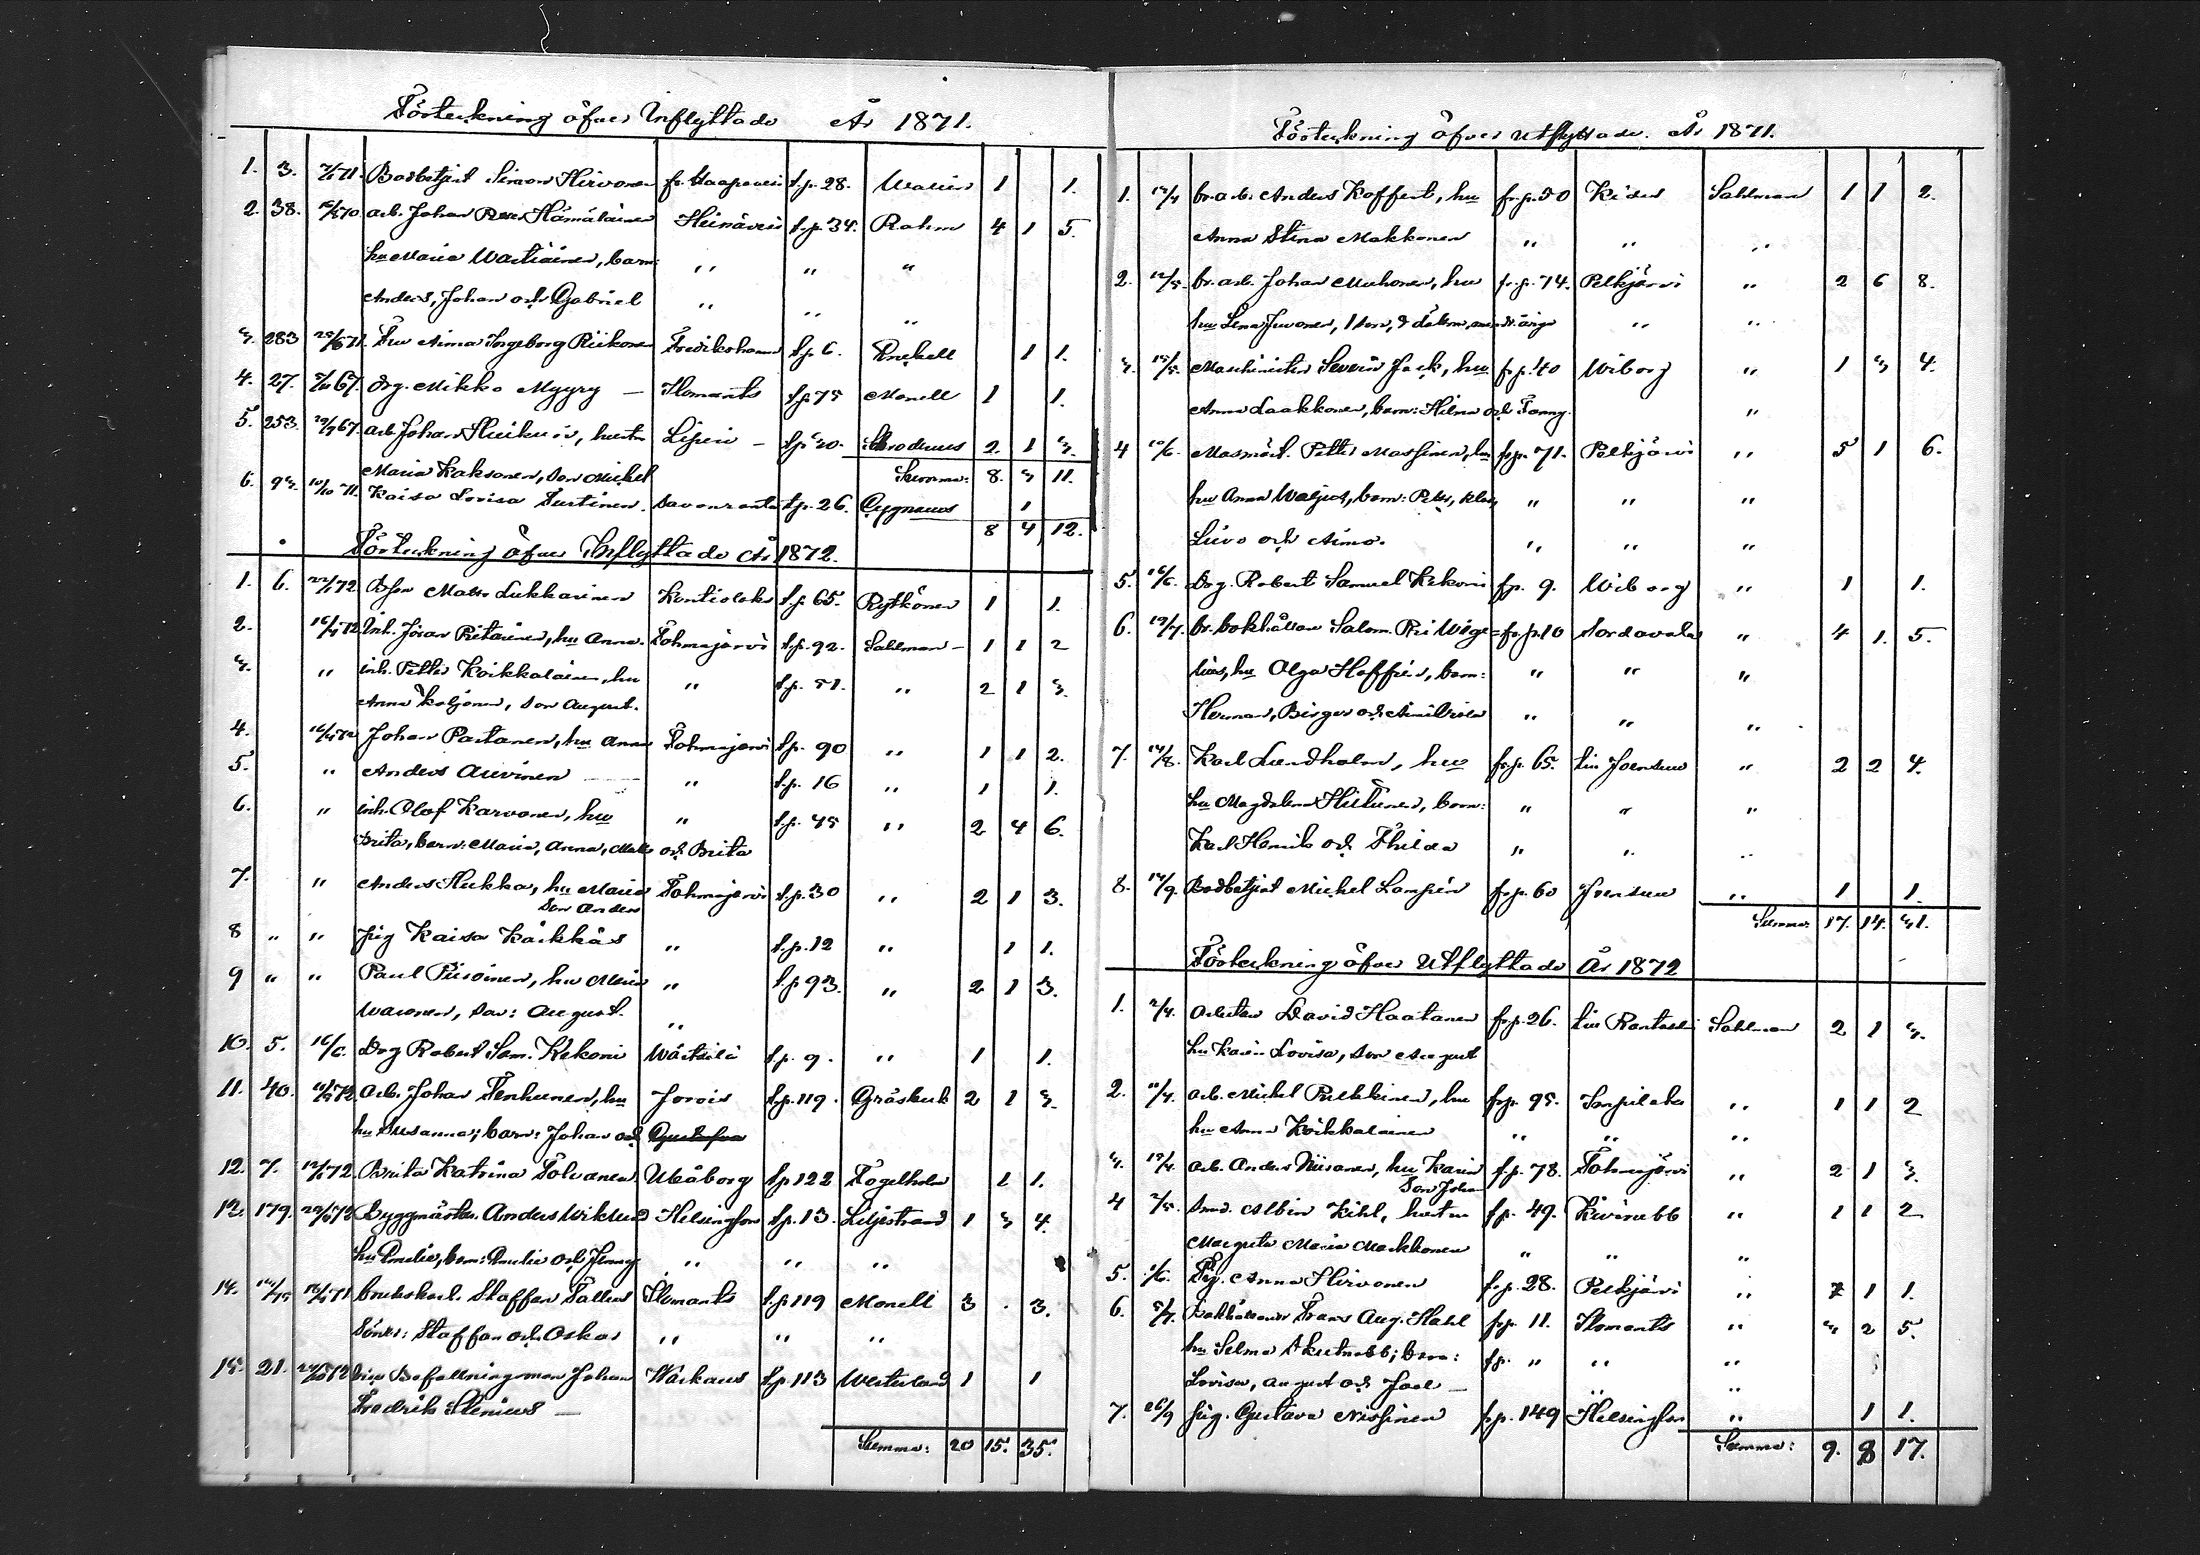 Förteckning öfver Inflyttade År 1871.
1. 3. 7/1 71. Bodbetjent Simon Hirvonen fr Haapavesi t.p. 28. Wallin 1 1.
2. 38. 70 arb. Johan Petter Hämäläinen Heinävesi t.p. 34. Rahm 4 1 5.
hu Maria Wartiainen, barn: " " "
Anders, Johan och Gabriel " " "
3. 283 71. Fru Aina Ingeborg Riikonen Fredrikshamn t.p. 6. Enehell 1 1.
4. 27. 67. drg. Mikko Myyry — Ilomants t.p. 75 Monell 1 1.
5. 253. 67. arb. Johan Sluikuri, hustru Liperi — t.p. 20. Strodenus 2. 1 3.
Maria Kaksonen, son Michel Summa: 8. 3 11.
6. 93. 10/10 71. Kaisa Lovisa Turtinen. Savonranta t.p. 26. Cygnaeus 1
8 4 12.
Förteckning öfver Inflyttade År 1872.
1. 6. 22/1 72 Matts Lukkarinen Kontiolaks t.p. 65. Rytkönen 1 1.
2. 72 Inh. Jöran Pitkänen, hu Anna. Tohmajärvi t.p. 92. Sahlman — 1 1 2
3. " inh. Petter Koikkalainen, hu " t.p. 51. " 2 1 3.
Anna Koljonen, son August.
4. 72 Johan Partanen, hu Anna Tohmajärvi t.p. 90 " 1 1 2.
5. " Anders Auvinen " t.p. 16 " 1 1.
6. " inh. Olof Karvonen, hu " t.p. 45 " 2 4 6.
Brita, barn: Maria, Anna, Matts och Brita
7. " Anders Hukka, hu Maria Tohmajärvi t.p. 30 " 2 1 3.
Son Anders
8 " " pig Kaisa Käkkäs " t.p. 12 " 1 1.
9 " " Paul Piiroinen, hu Maria " t.p. 93. " 2 1 3.
Waronen, son: August. "
10. 5. 16/6. Drg Robert Sam. Kekoni Wärtsilä t.p. 9. " 1 1.
11. 40. 72 Arb. Johan Tenhunen, hu Jorois t.p. 119. Gråsbeck 2 1 3.
hu Susanna; barn: Johan och Gustafva
12. 7. 72 Brita Katrina Tolvanen Uleåborg t.p. 122 Fogelholm 1 1.
13. 179. 72 Byggmäster Anders Wiklund Helsingfors t.p. 13. Liljestrand 1 3 4.
hu Emelie, barn: Emelie och Jenny " " "
14. 71 brukskarl. Staffan Tallus Ilomants t.p. 119 Monell 3 . 3.
Söner: Staffan och Oskar " " "
15. 21. 72 Befallningsman Johan Warkaus t.p. 113 Westerlund 1 1
Fredrik Stenius —
Summa: 20 15. 35.
Förteckning öfver Utflyttade. År 1871.
1. 12/4 br.arb. Anders Koffert, hu fr.p. 50 Kides Sahlman 1 1 2.
Anna Stina Makkonen " " "
2. 12/5. br. arb. Johan Muhonen, hu fr.p. 74. Pelkjärvi " 2 6 8.
hu Lena Juvonen, 1 son, 5 döttrar, " "
3. 15/5. Maschinisten Severin Jack, hu fr.p. 40 Wiborg " 1 3 4.
Anna Laakkonen, barn: Hilma och Fanny. "
4 10/6. Masmäst. Petter Massinen, hu fr.p. 71. Pelkjärvi " 5 1 6.
hu Anna Waljus, barn: Petter, Klas, " " "
Liivo och Aimo. " " "
5. 16/6. Drg. Robert Samuel Kekoni fr.p. 9. Wiborg " 1 1.
6. 19/7. br. bokhållaren Salom. Fri Wige= fr.p. 10 Sordavala " 4 1. 5.
lius, hu Olga Hoffrén, barn: " " "
Herman, Birger och " " "
7. 14/8. Karl Lundholm, hu fr.p. 65. till Joensuu " 2 2 4.
hu Magdalena Hiltunen, barn: " " "
Karl Henrik och Thilda " " "
8. 14/9. Bodbetjent Michel Lampén fr.p. 60 Joensuu " 1 1.
Summa 17. 14. 31.
Förteckning öfver Utflyttade År 1872
1. 2/4. Arbetar David Haatanen fr.p. 26. till Rantasalmi Sahlman 2 1 3.
hu Karin Lovisa, son August
2. 11/4. arb. Michel Pulkkinen, hu fr.p. 95. Impilaks " 1 1 2
hu Anna Koikkalainen " " "
3. 15/4. arb. Anders Niiranen, hu Karin fr.p. 78. Tohmajärvi " 2 1 3.
Son Johan
4 2/5. Smd. Albin Kihl, hustru fr.p. 49. Kivinebb " 1 1 2
Margreta Maria Markkonen " " "
5. 1/6. Pig. Anna Hirvonen fr.p. 28. Pelkjärvi " 1 1.
6. 5/7. Bokhållaren Frans Aug. Stahl fr.p. 11. Ilomants " 3 2 5.
hu Selma Skutnabb; barn: fr. " " "
Lovisa, August och Joel — "
7. 26/9 pig. Gustava Nissinen fr.p. 149 Helsingfors " 1 1.
Summa: 9. 8 17.